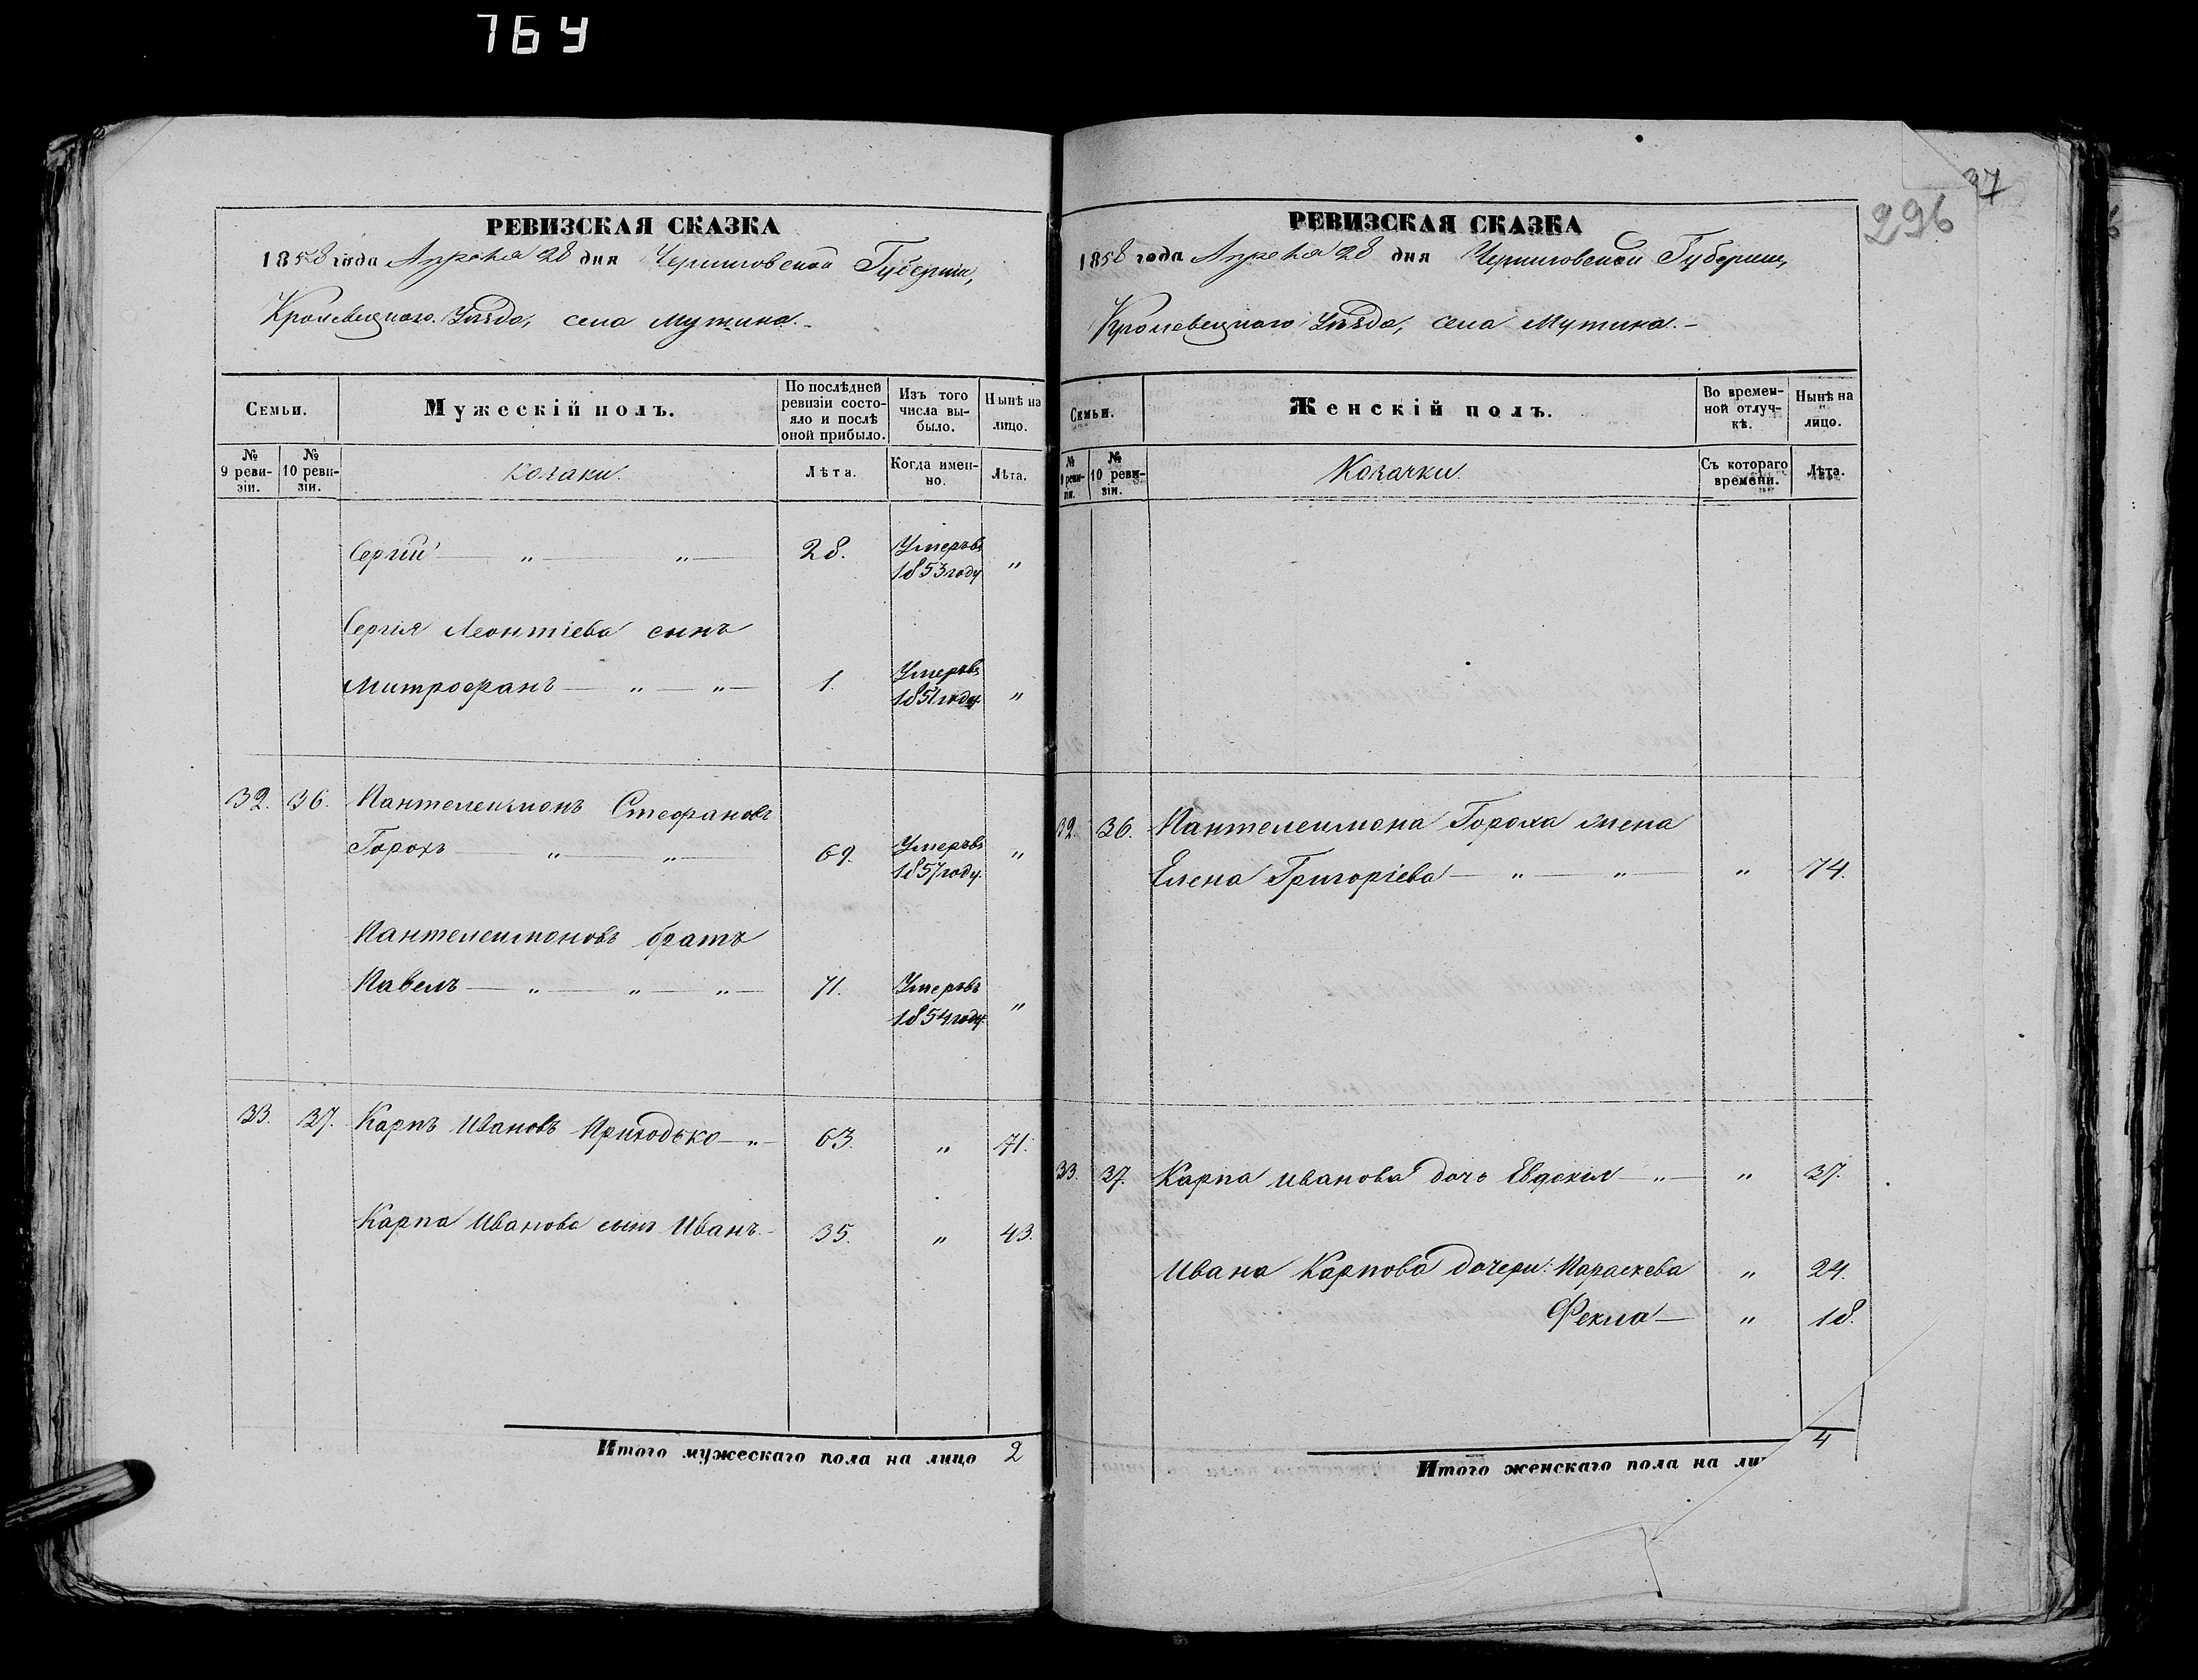 764
РЕВИЗСКАЯ СКАЗКА
1858 года Апреля 28 дня Черниговской Губерніи,
Кролевецкаго Уѣзда, села Мутина.
Семьи.
Мужескій полъ.
По послѣдней ревизіи состояло и послѣ оной прибыло.
Изъ того числа выбыло.
Нынѣ на лицо.
№ 9 ревизіи.
№ 10 ревизіи.
Козаки.
Лѣта.
Когда именно.
Лѣта.
Сергій — „ — „ — 28. Умеръ въ 1853 году „
Сергія Леонтіева сынъ
Митрофанъ — „ — „ — 1. Умеръ въ 1851 году. „
32. 36. Пантелеимонъ Стефановъ
Горохъ — „ — „ — 69. Умеръ въ 1857 году. „
Пантелеимоновъ братъ
Павелъ — „ — „ — „ — 71. Умеръ въ 1854 году. „
33. 37. Карпъ Ивановъ Приходько — „ — 63. „ 71.
Карпа Иванова сынъ Иванъ. — 35. „ 43.
Итого мужескаго пола на лицо 2
37
296
РЕВИЗСКАЯ СКАЗКА
1858 года Апреля 28 дня Черниговской Губерніи,
Кролевецкаго Уѣзда, села Мутина. —
Семьи.
Женскій полъ.
Во временной отлучкѣ.
Нынѣ на лицо.
№ 9 ревизіи.
№ 10 ревизіи.
Козачки.
Съ котораго времени.
Лѣта.
32. 36. Пантелеимона Гороха жена
Елена Григоріева — „ — „ — „ 74.
33. 37. Карпа Иванова дочь Евдокія — „ — „ 37.
Ивана Карпова дочери: Параскева „ 24.
Фекла — „ 18.
4
Итого женскаго пола на ли